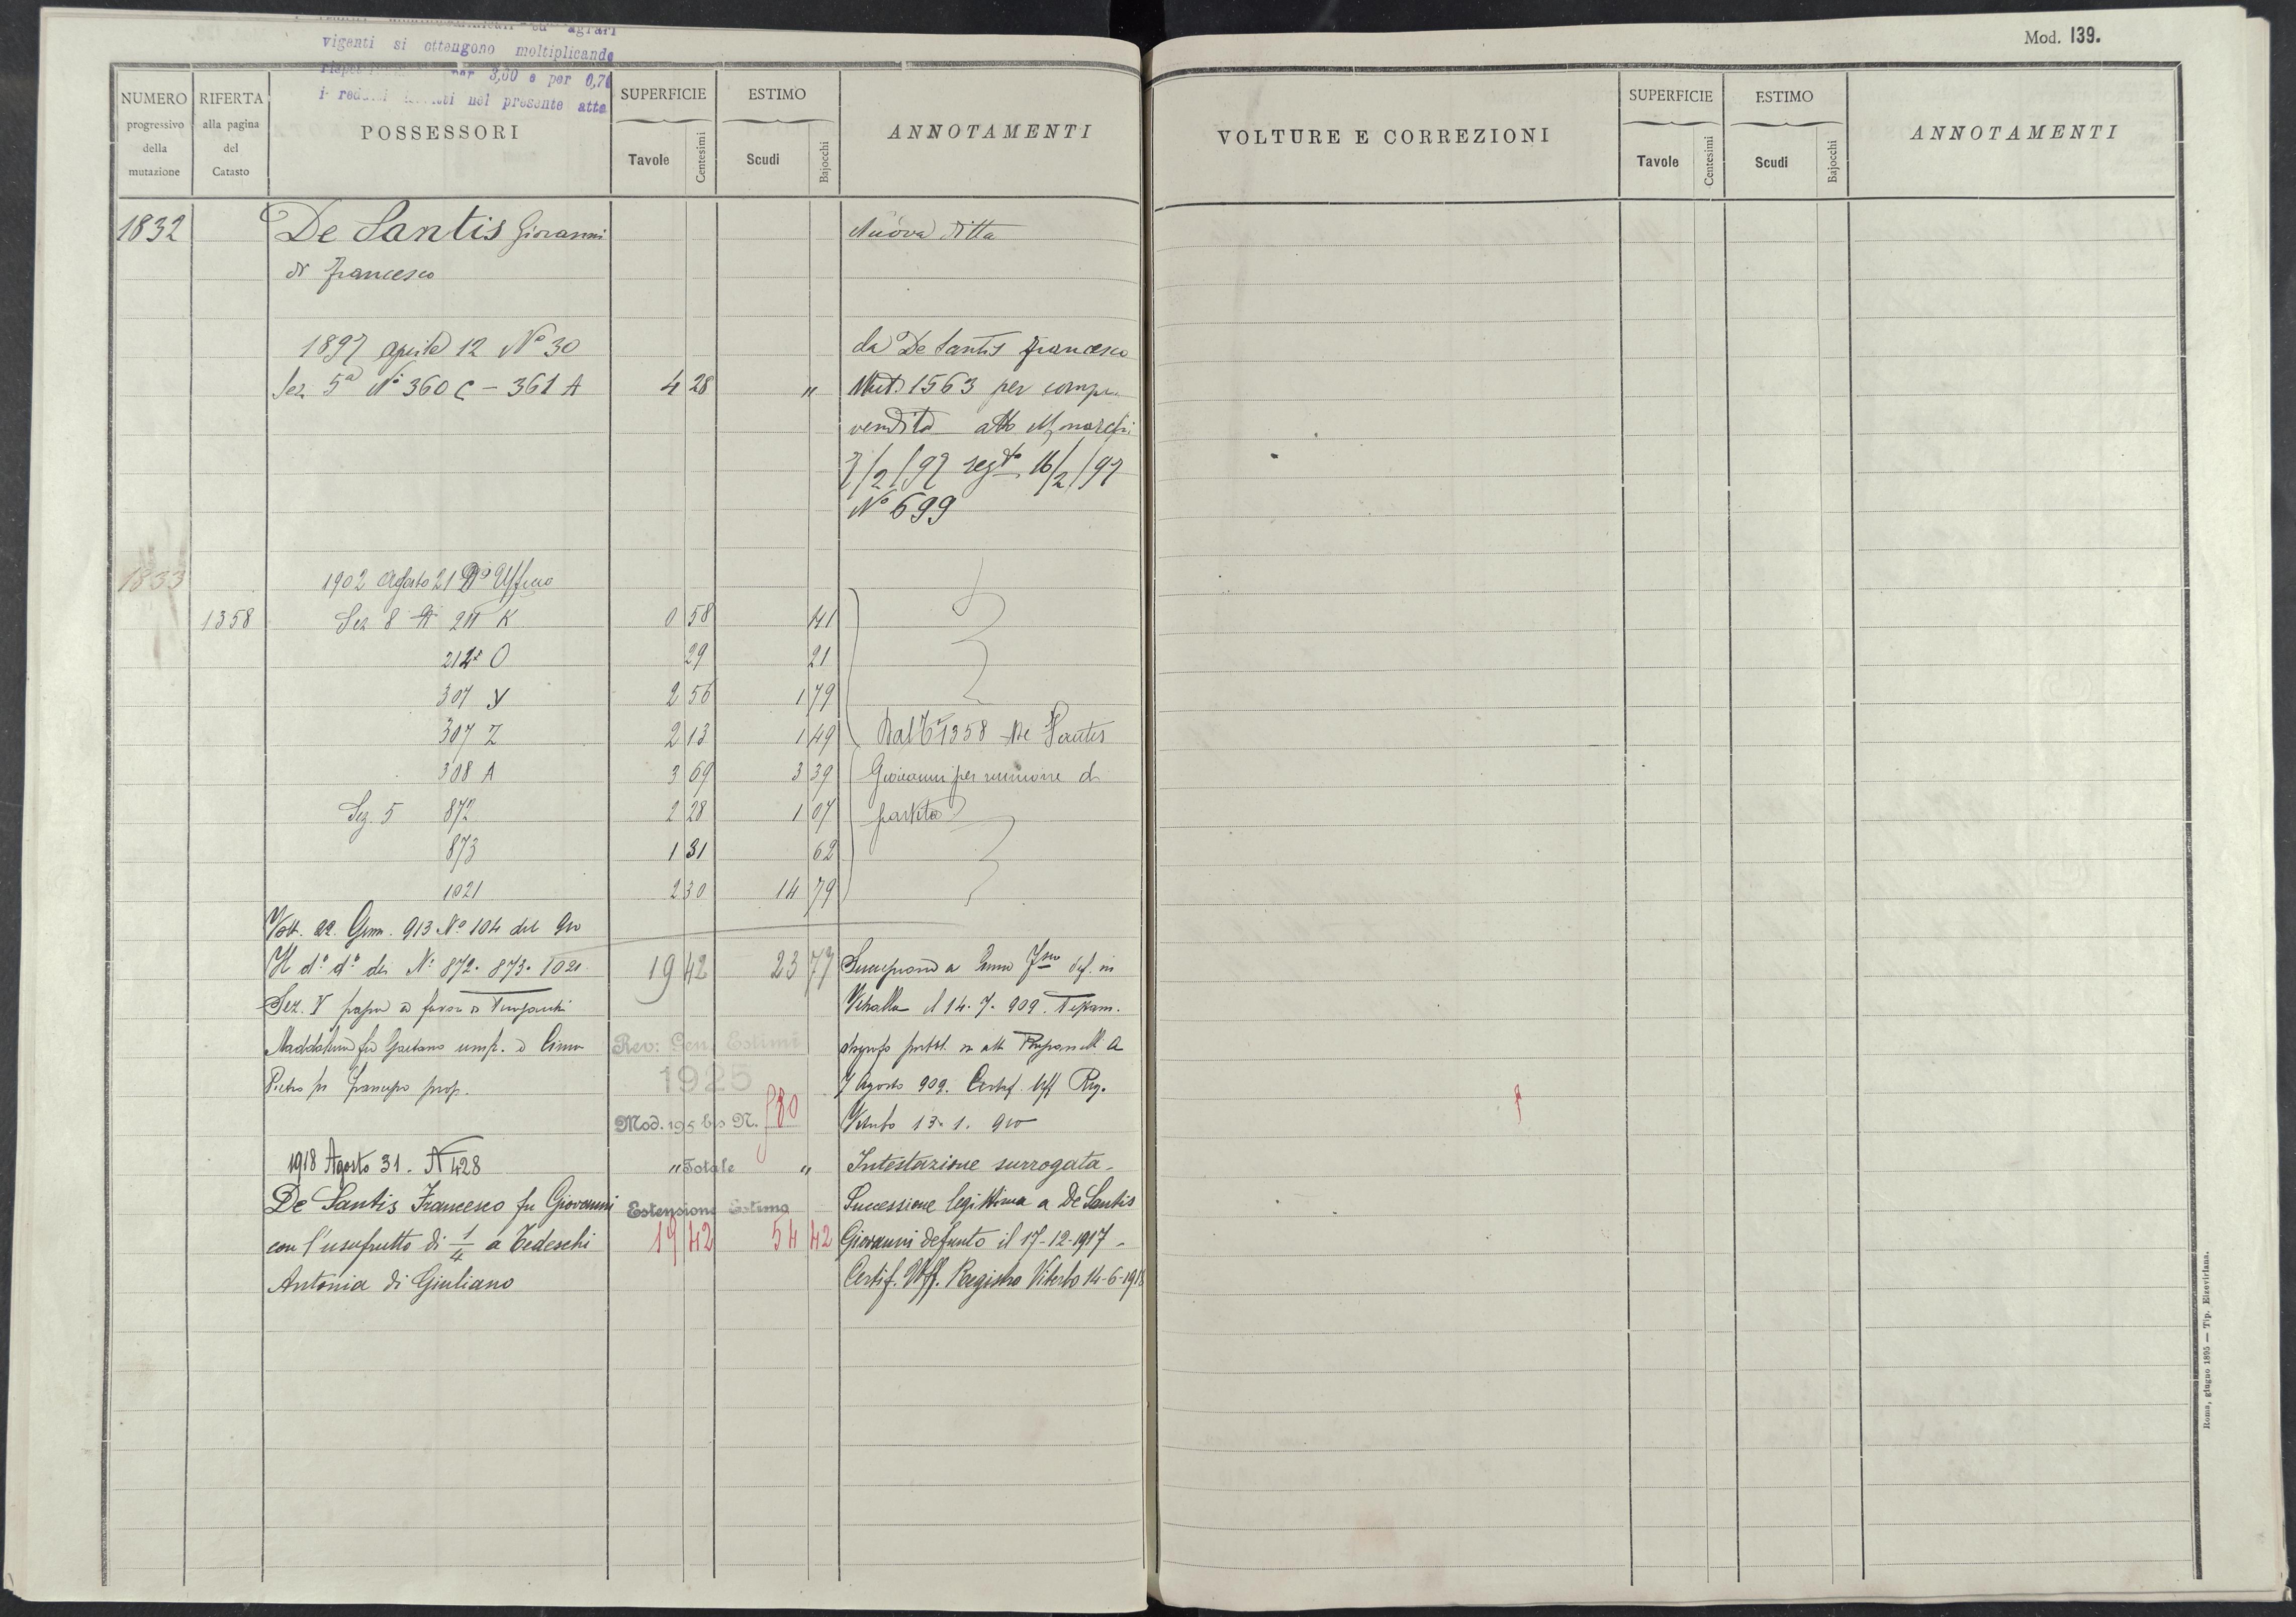 viganti si ottengono moltiplicando
per 3,50 e per 0,70
i nel presente atto
Mod. 139.
NUMERO progressivo della mutazione
RIFERTA alla pagina del Catasto
POSSESSORI
SUPERFICIE
Tavole Centesimi
ESTIMO
Scudi Bajocchi
ANNOTAMENTI
VOLTURE E CORREZIONI
SUPERFICIE
Tavole Centesimi
ESTIMO
Scudi Bajocchi
ANNOTAMENTI
1832 De Santis Giovanni Nuova ditta
di Francesco
1897 aprile 12 N° 30 da De Santis Francesco
Sez. 5ª N° 360 C - 361 A 4 28 " Mut. 1563 per compra
vendita atto
7/2/97 regto 16/2/97
N° 699
1833 1902 Agosto 21 Ufficio
1358 Sez 8 211 K 0 58 41
212 O 29 21
307 Y 2 56 1 79
307 Z 2 13 1 49 Dal 1358 De Santis
308 A 3 69 3 39 Giovanni per riunione di
Sez. 5 872 2 28 1 07 partita
873 1 31 62
1021 2 30 14 79
Volt. 22. Genn. 913 N° 104 del 910
d° d° dei N° 872. 873. 1021 19 42 23 77 Successione a def. in
Sez. V a favore di Vetralla il 14. 7. 909. Testam.
Maddalena fu Gaetano usuf. e Rev: Gen. Estimi
Pietro fu Francesco prop. 1925 7 Agosto 909. Certif. Uff. Reg.
Mod. 195 bis N. 980 Viterbo 13. 1. 910
1918 Agosto 31. N 428 " Totale " Intestazione surrogata.
De Santis Francesco fu Giovanni Estensione Estimo Successione legittima a De Santis
con l'usufrutto di 1/4 a Tedeschi 19 42 54 42 Giovanni defunto il 17-12-1917.
Antonia di Giuliano Certif. Uff. Registro Viterbo 14-6-1918
Roma, giugno 1895 — Tip. Elzeviriana.